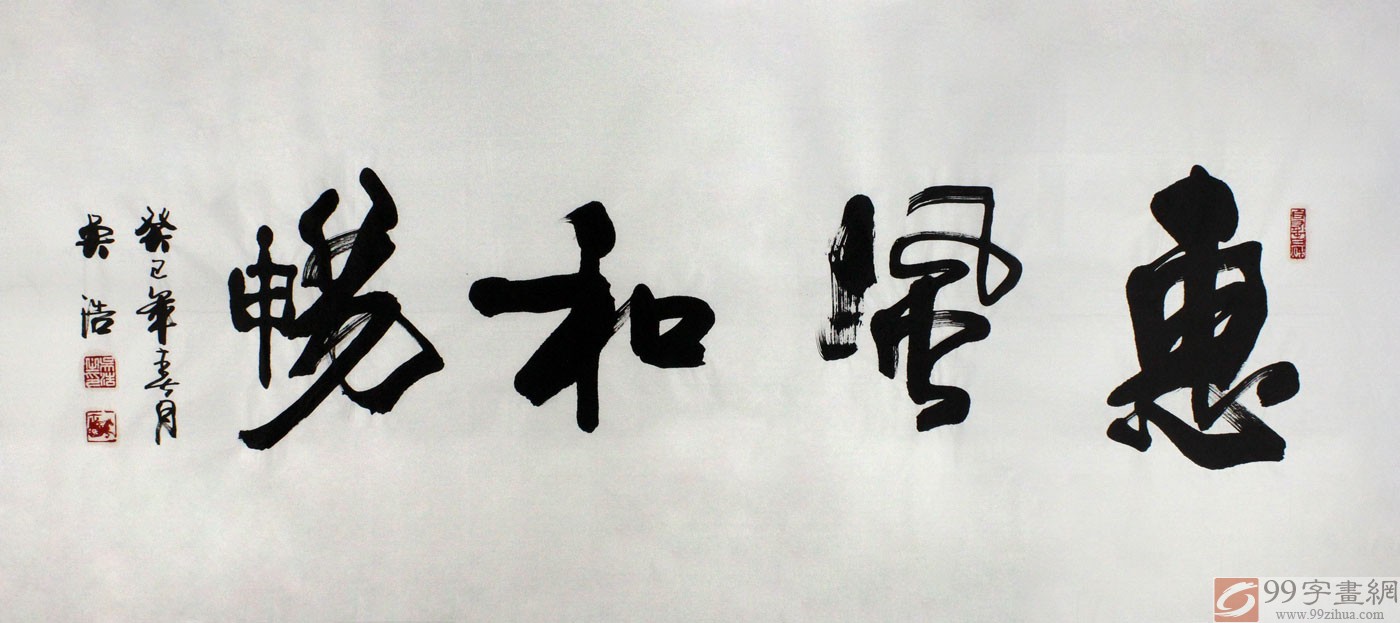 惠風和暢
癸巳年春月
吳浩
99字畫網
www.99zihua.com